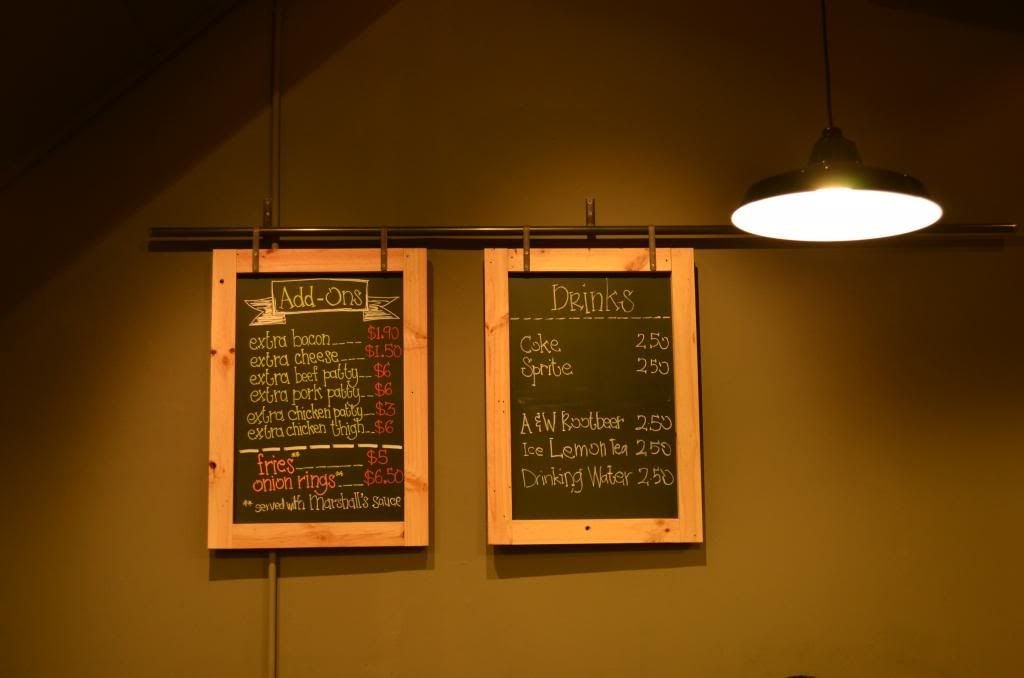 Add-Ons
extra bacon____ $1.90
extra cheese___ $1.50
extra beef patty__ $6
extra pork patty__ $6
extra chicken patty__ $3
extra chicken thigh__ $6
fries**________ $5
onion rings**___ $6.50
** served with Marshall's sauce
Drinks
Coke 2.50
Sprite 2.50
A&W Rootbeer 2.50
Ice Lemon Tea 2.50
Drinking Water 2.50